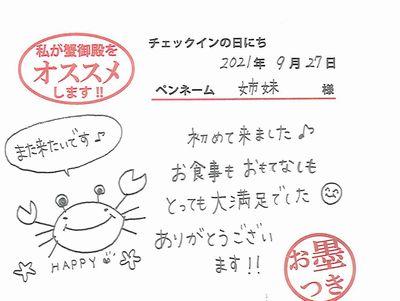 私が蟹御殿を
オススメ
します!!
チェックインの日にち
2021年 9月27日
ペンネーム 姉妹 様
また来たいです♪
初めて来ました♪
お食事も おもてなしも
とっても大満足でした
ありがとうござい
ます!!
HAPPY
お墨
つき